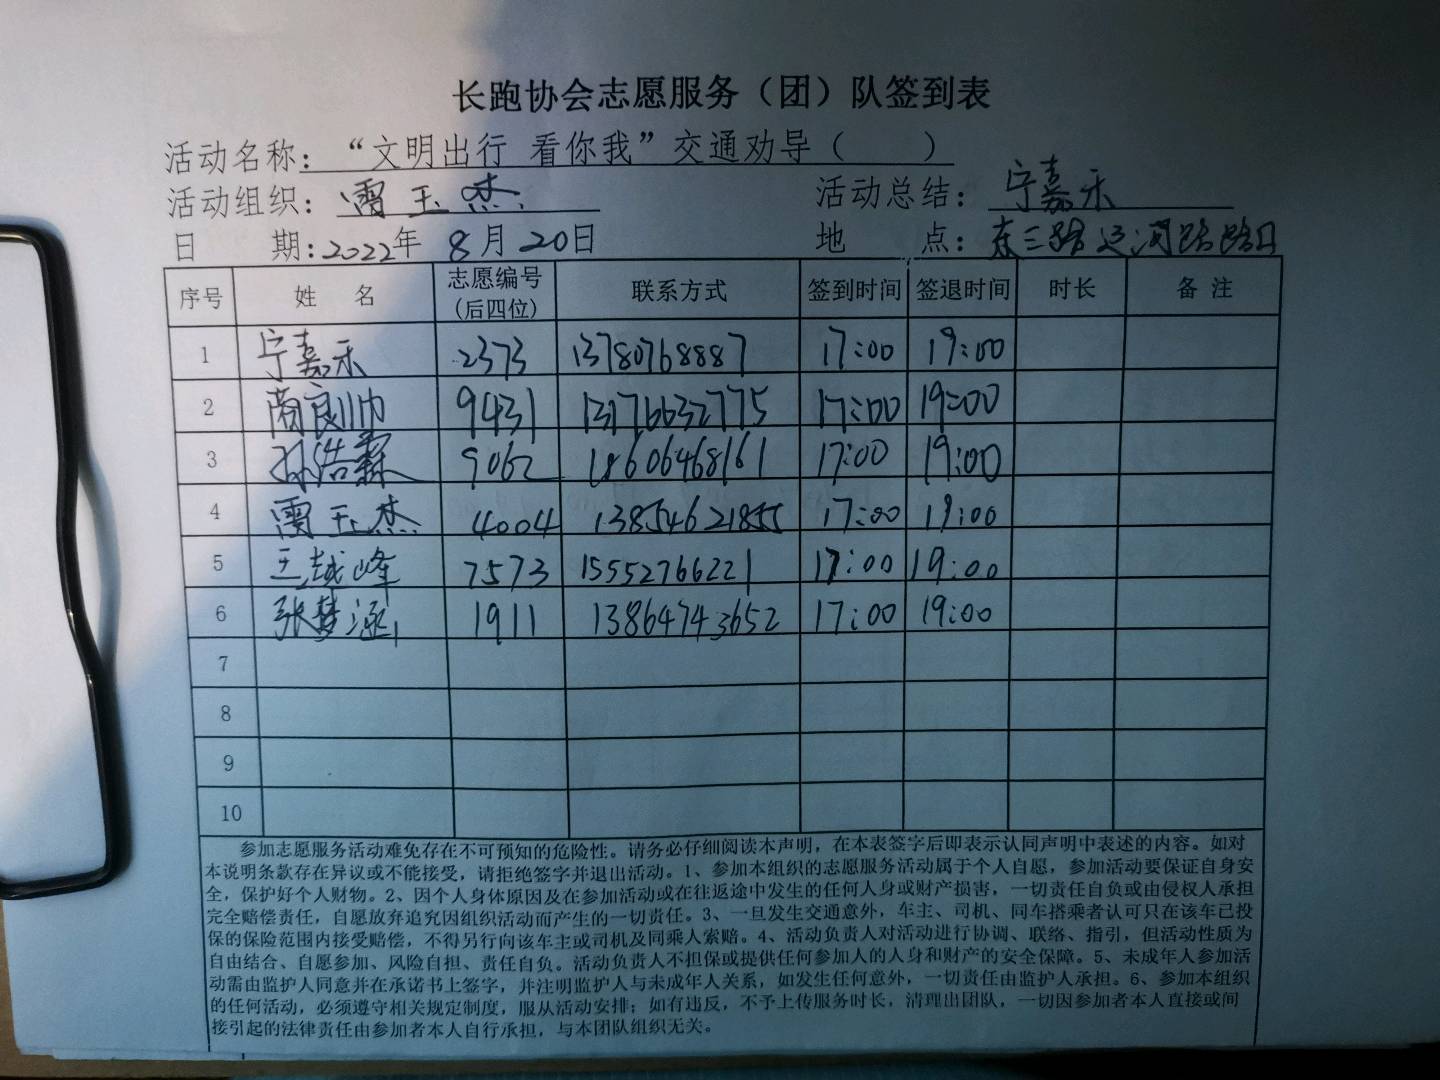 长跑协会志愿服务（团）队签到表
活动名称：“文明出行 看你我”交通劝导（ ）
活动组织：雷玉杰 活动总结：宁嘉禾
日 期：2022年8月20日 地 点：东三路运河路路口
序号 姓 名 志愿编号（后四位） 联系方式 签到时间 签退时间 时长 备 注
1 宁嘉禾 2373 13780768887 17:00 19:00
2 商良帅 9431 13176632775 17:00 19:00
3 孙浩霖 9062 18606468161 17:00 19:00
4 雷玉杰 4004 13854621855 17:00 19:00
5 王越峰 7573 15552766221 17:00 19:00
6 张梦涵 1911 13864743652 17:00 19:00
7
8
9
10
参加志愿服务活动难免存在不可预知的危险性。请务必仔细阅读本声明，在本表签字后即表示认同声明中表述的内容。如对
本说明条款存在异议或不能接受，请拒绝签字并退出活动。1、参加本组织的志愿服务活动属于个人自愿，参加活动要保证自身安
全，保护好个人财物。2、因个人身体原因及在参加活动或在往返途中发生的任何人身或财产损害，一切责任自负或由侵权人承担
完全赔偿责任，自愿放弃追究因组织活动而产生的一切责任。3、一旦发生交通意外，车主、司机、同车搭乘者认可只在该车已投
保的保险范围内接受赔偿，不得另行向该车主或司机及同乘人索赔。4、活动负责人对活动进行协调、联络、指引，但活动性质为
自由结合、自愿参加、风险自担、责任自负。活动负责人不担保或提供任何参加人的人身和财产的安全保障。5、未成年人参加活
动需由监护人同意并在承诺书上签字，并注明监护人与未成年人关系，如发生任何意外，一切责任由监护人承担。6、参加本组织
的任何活动，必须遵守相关规定制度，服从活动安排；如有违反，不予上传服务时长，清理出团队，一切因参加者本人直接或间
接引起的法律责任由参加者本人自行承担，与本团队组织无关。